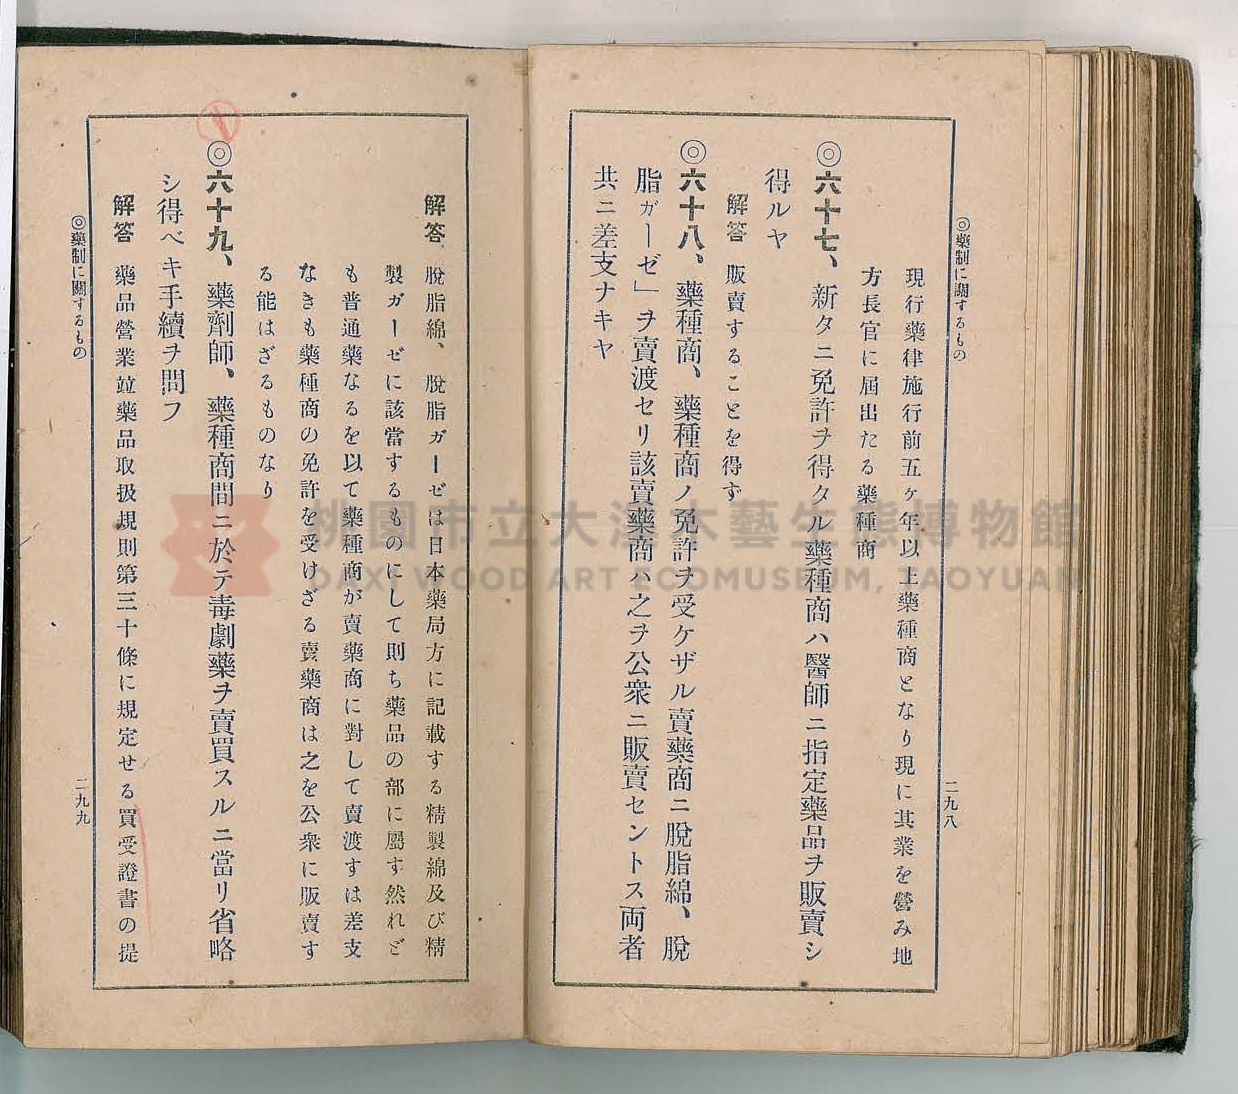 ◎藥制に關するもの
二九八
現行藥律施行前五ヶ年以上藥種商となり現に其業を營み地
方長官に屆出たる藥種商
◎六十七、新タニ免許ヲ得タル藥種商ハ醫師ニ指定藥品ヲ販賣シ
得ルヤ
解答 販賣することを得ず
◎六十八、藥種商、藥種商ノ免許ヲ受ケザル賣藥商ニ脫脂綿、脫
脂ガーゼ」ヲ賣渡セリ該賣藥商ハ之ヲ公衆ニ販賣セントス両者
共ニ差支ナキヤ
解答 脫脂綿、脫脂ガーゼは日本藥局方に記載する精製綿及び精
製ガーゼに該當するものにして則ち藥品の部に屬す然れど
も普通藥なるを以て藥種商が賣藥商に對して賣渡すは差支
なきも藥種商の免許を受けざる賣藥商は之を公衆に販賣す
る能はざるものなり
◎六十九、藥劑師、藥種商間ニ於テ毒劇藥ヲ賣買スルニ當リ省略
シ得ベキ手續ヲ問フ
解答 藥品營業竝藥品取扱規則第三十條に規定せる買受證書の提
◎藥制に關するもの
二九九
桃園市立大溪木藝生態博物館
DAXI WOOD ART ECOMUSEUM, TAOYUAN